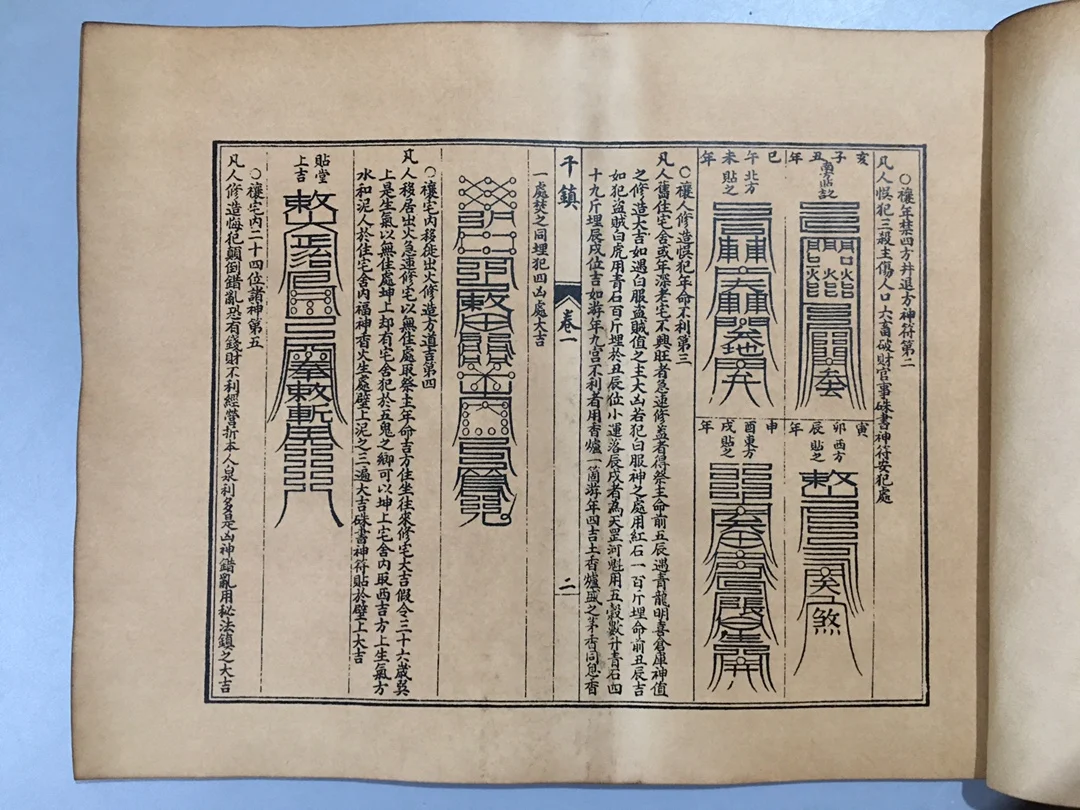 ○禳年禁四方并退方神符第二
凡人悞犯三殺主傷人口六畜破財官事硃書神符安犯處
亥子丑年
巳午未年
北方貼之
寅卯辰年
西方貼之
申酉戌年
東方貼之
○禳人修造悞犯年命不利第三
凡人舊住宅舍或年深老宅不興旺者急速修蓋者得祭主命前五辰遇青龍明喜倉庫神值
之修造大吉如遇白服盜賊值之主大凶若犯白服神之處用紅石一百斤埋命前丑辰吉
如犯盜賊白虎用青石百斤埋於丑辰位小運落辰戌者為天罡河魁用五穀數升青石四
十九斤埋辰戌位吉如游年九宮不利者用香爐一箇游年四吉土香爐盛之茅香同息香
一處焚之同埋犯四凶處大吉
千鎮
卷一
二
○禳宅內移徙出火修造方道吉第四
凡人移居出火急速修宅以無住處取祭主年命吉方住坐往來修宅大吉假令三十六歲巽
上是生氣以無住處坤上却有宅舍犯於五鬼之鄉可以坤上宅舍內取西吉方上生氣方
水和泥人於住宅舍內福神香火生處壁上泥之三遍大吉硃書神符貼於壁上大吉
貼堂上吉
○禳宅內二十四位諸神第五
凡人修造悔犯顛倒錯亂恐有錢財不利經營折本人泉利多是凶神錯亂用秘法鎮之大吉